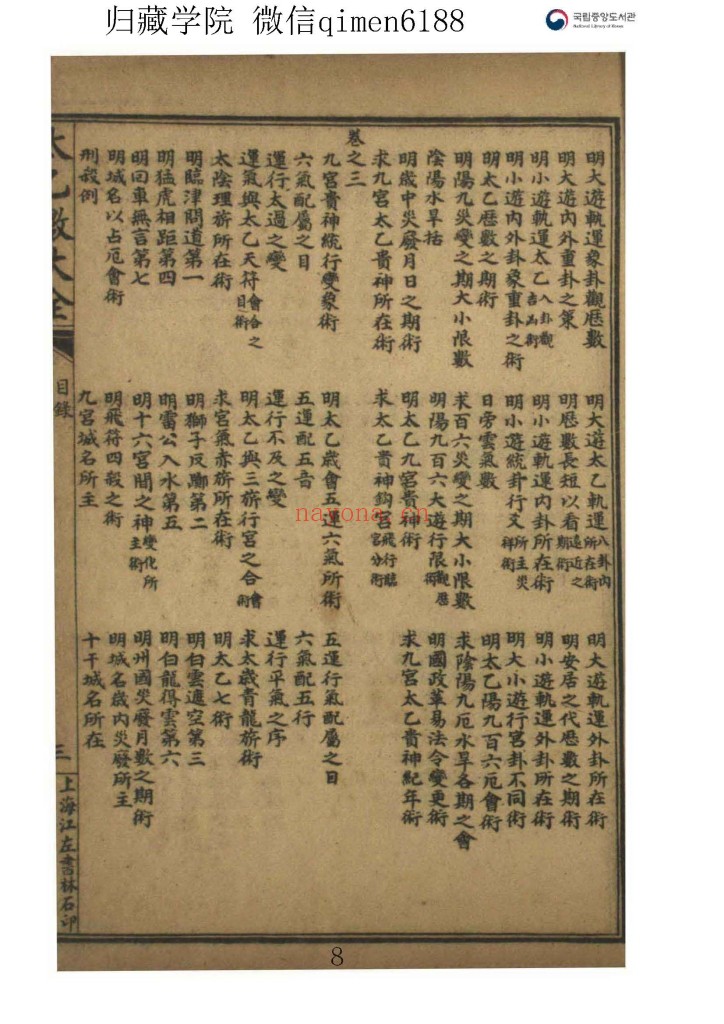 归藏学院 微信qimen6188
국립중앙도서관
National Library of Korea
明大遊軌運象卦觀厯數 明大遊太乙軌運八卦內所在術 明大遊軌運外卦所在術
明大遊內外重卦之策 明厯數長短以看遠近之期術 明安居之代厯數之期術
明小遊軌運太乙入卦觀吉凶術 明小遊軌運內卦所在術 明小遊軌運外卦所在術
明小遊內外卦象重卦之術 明小遊統卦行爻所主災祥術 明大小遊行宮卦不同術
明太乙厯數之期術 日旁雲氣數 明太乙陽九百六厄會術
明陽九災變之期大小限數 求百六災變之期大小限數 求陰陽九厄水旱各期之會
陰陽水旱括 明陽九百六大遊行限觀厯術 明國政革易法令變更術
明歲中災廢月日之期術 明太乙九宮貴神術 求九宮太乙貴神紀年術
求九宮太乙貴神所在術 求太乙貴神鈎宮飛行臨宮分術
卷之三
九宮貴神統行變象術 明太乙歲會五運六氣所術 五運行氣配屬之日
六氣配屬之日 五運配五音 六氣配五行
運行太過之變 運行不及之變 運行平氣之序
運氣與太乙天符會合之日術 明太乙與三旂行宮之合會術 求太歲青龍旂術
太陰理旂所在術 求宮氣赤旂所在術 明太乙七術
明臨津問道第一 明獅子反擲第二 明白雲遮空第三
明猛虎相距第四 明雷公入水第五 明白龍得雲第六
明回車無言第七 明十六宮間之神變化所主術 明州國災廢月數之期術
明城名以占厄會術 明飛符四殺之術 明城名歲內災廢所主
刑殺例 九宮城名所主 十干城名所在
太乙數大全
目錄
三
上海江左書林石印
nayona.cn
8